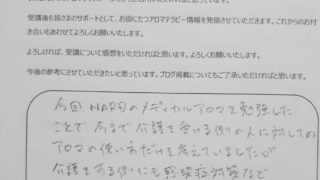 受講後も皆さまのサポートとして、お役だつアロマテラピー情報を発信させていただきます。これからのお付
き合いもあわせてよろしくお願いいたします。
よろしければ、受講について感想をいただければと思います。よろしくお願いいたします。
今後の参考にさせていただきたいと思っています。ブログ掲載についてもご了承いただければと思います。
今回 NARDのメディカルアロマを勉強した
ことで 今まで 介護を受ける側の人に対しての
アロマの使い方だけを考えていましたが
介護をする側にも感染症対策など